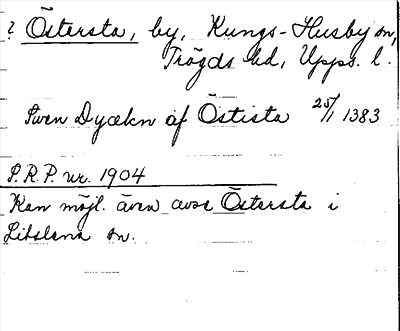 ? Östersta, by, Kungs-Husby sn,
Trögds hd, Upps. l.
Swen Dyækn af Östista 25/1 1383
P.R.P. nr. 1904
Kan möjl. även avse Östersta i
Litslena sn.